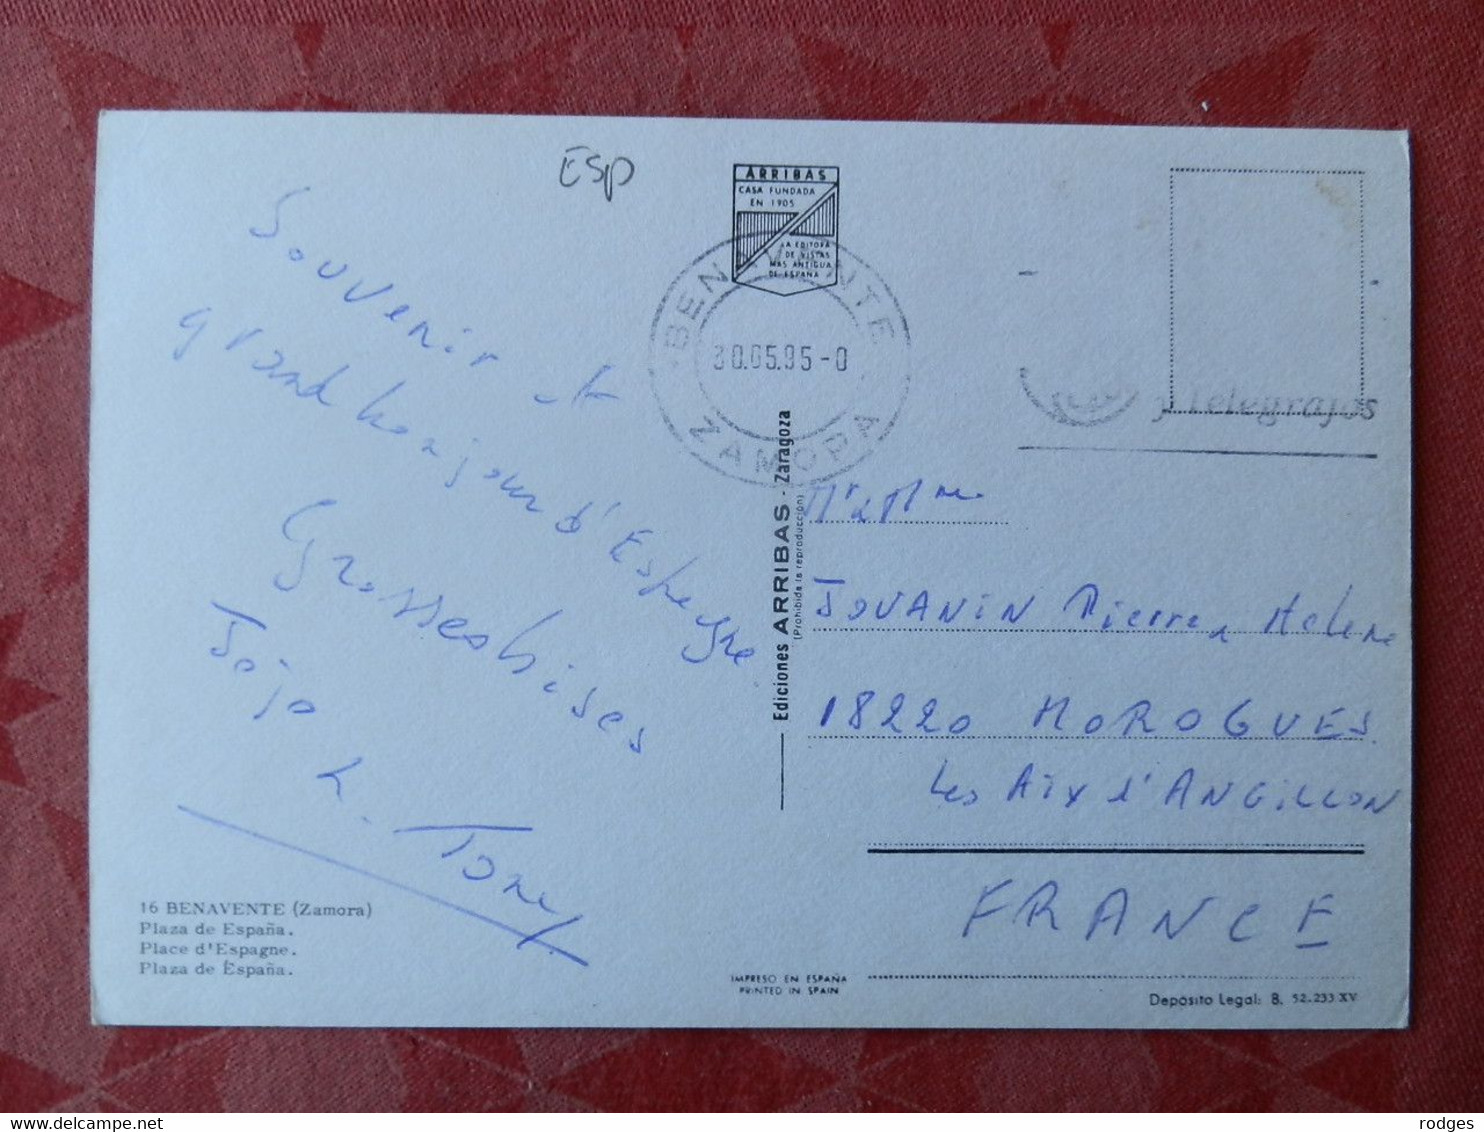 ESP
ARRIBAS
CASA FUNDADA
EN 1905
LA EDITORA
DE VISTAS
MAS ANTIGUA
DE ESPAÑA
BENAVENTE
30.05.95-0
ZAMORA
y Telegrafos
Souvenir et
grand bonjour d'Espagne
Grosses bises
Jojo
Tony
16 BENAVENTE (Zamora)
Plaza de España.
Place d'Espagne.
Plaza de España.
Ediciones ARRIBAS - Zaragoza
(Prohibida la reproducción)
IMPRESO EN ESPAÑA
PRINTED IN SPAIN
Mr & Mme
JOUANIN Pierre Helene
18220 MOROGUES
Les AIX d'ANGILLON
FRANCE
Depósito Legal: B. 52.233 XV
rodges